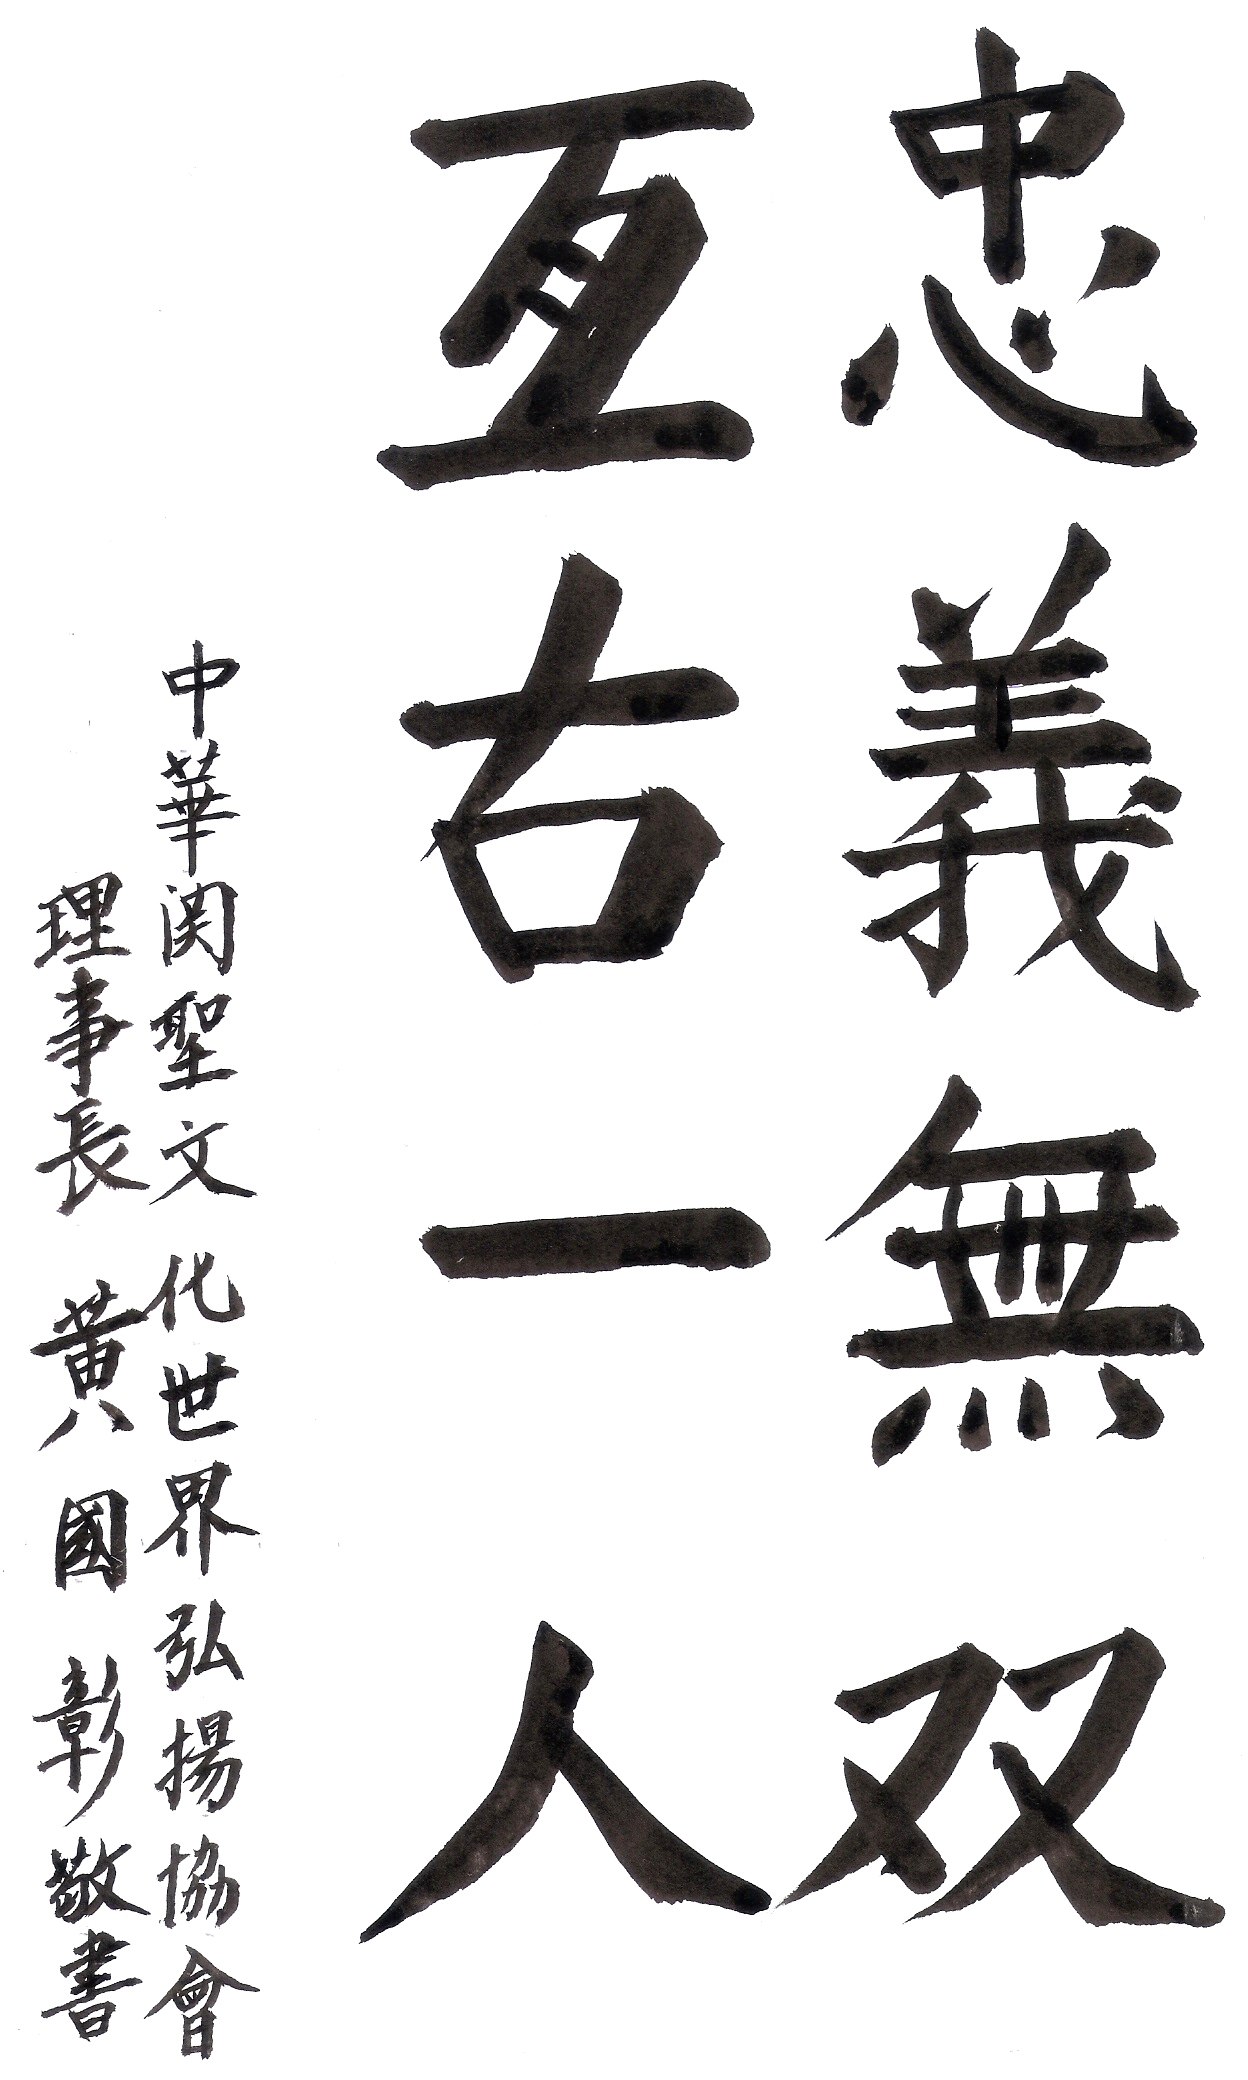 忠義無双
亙古一人
中華関聖文化世界弘揚協會
理事長 黄國彰敬書